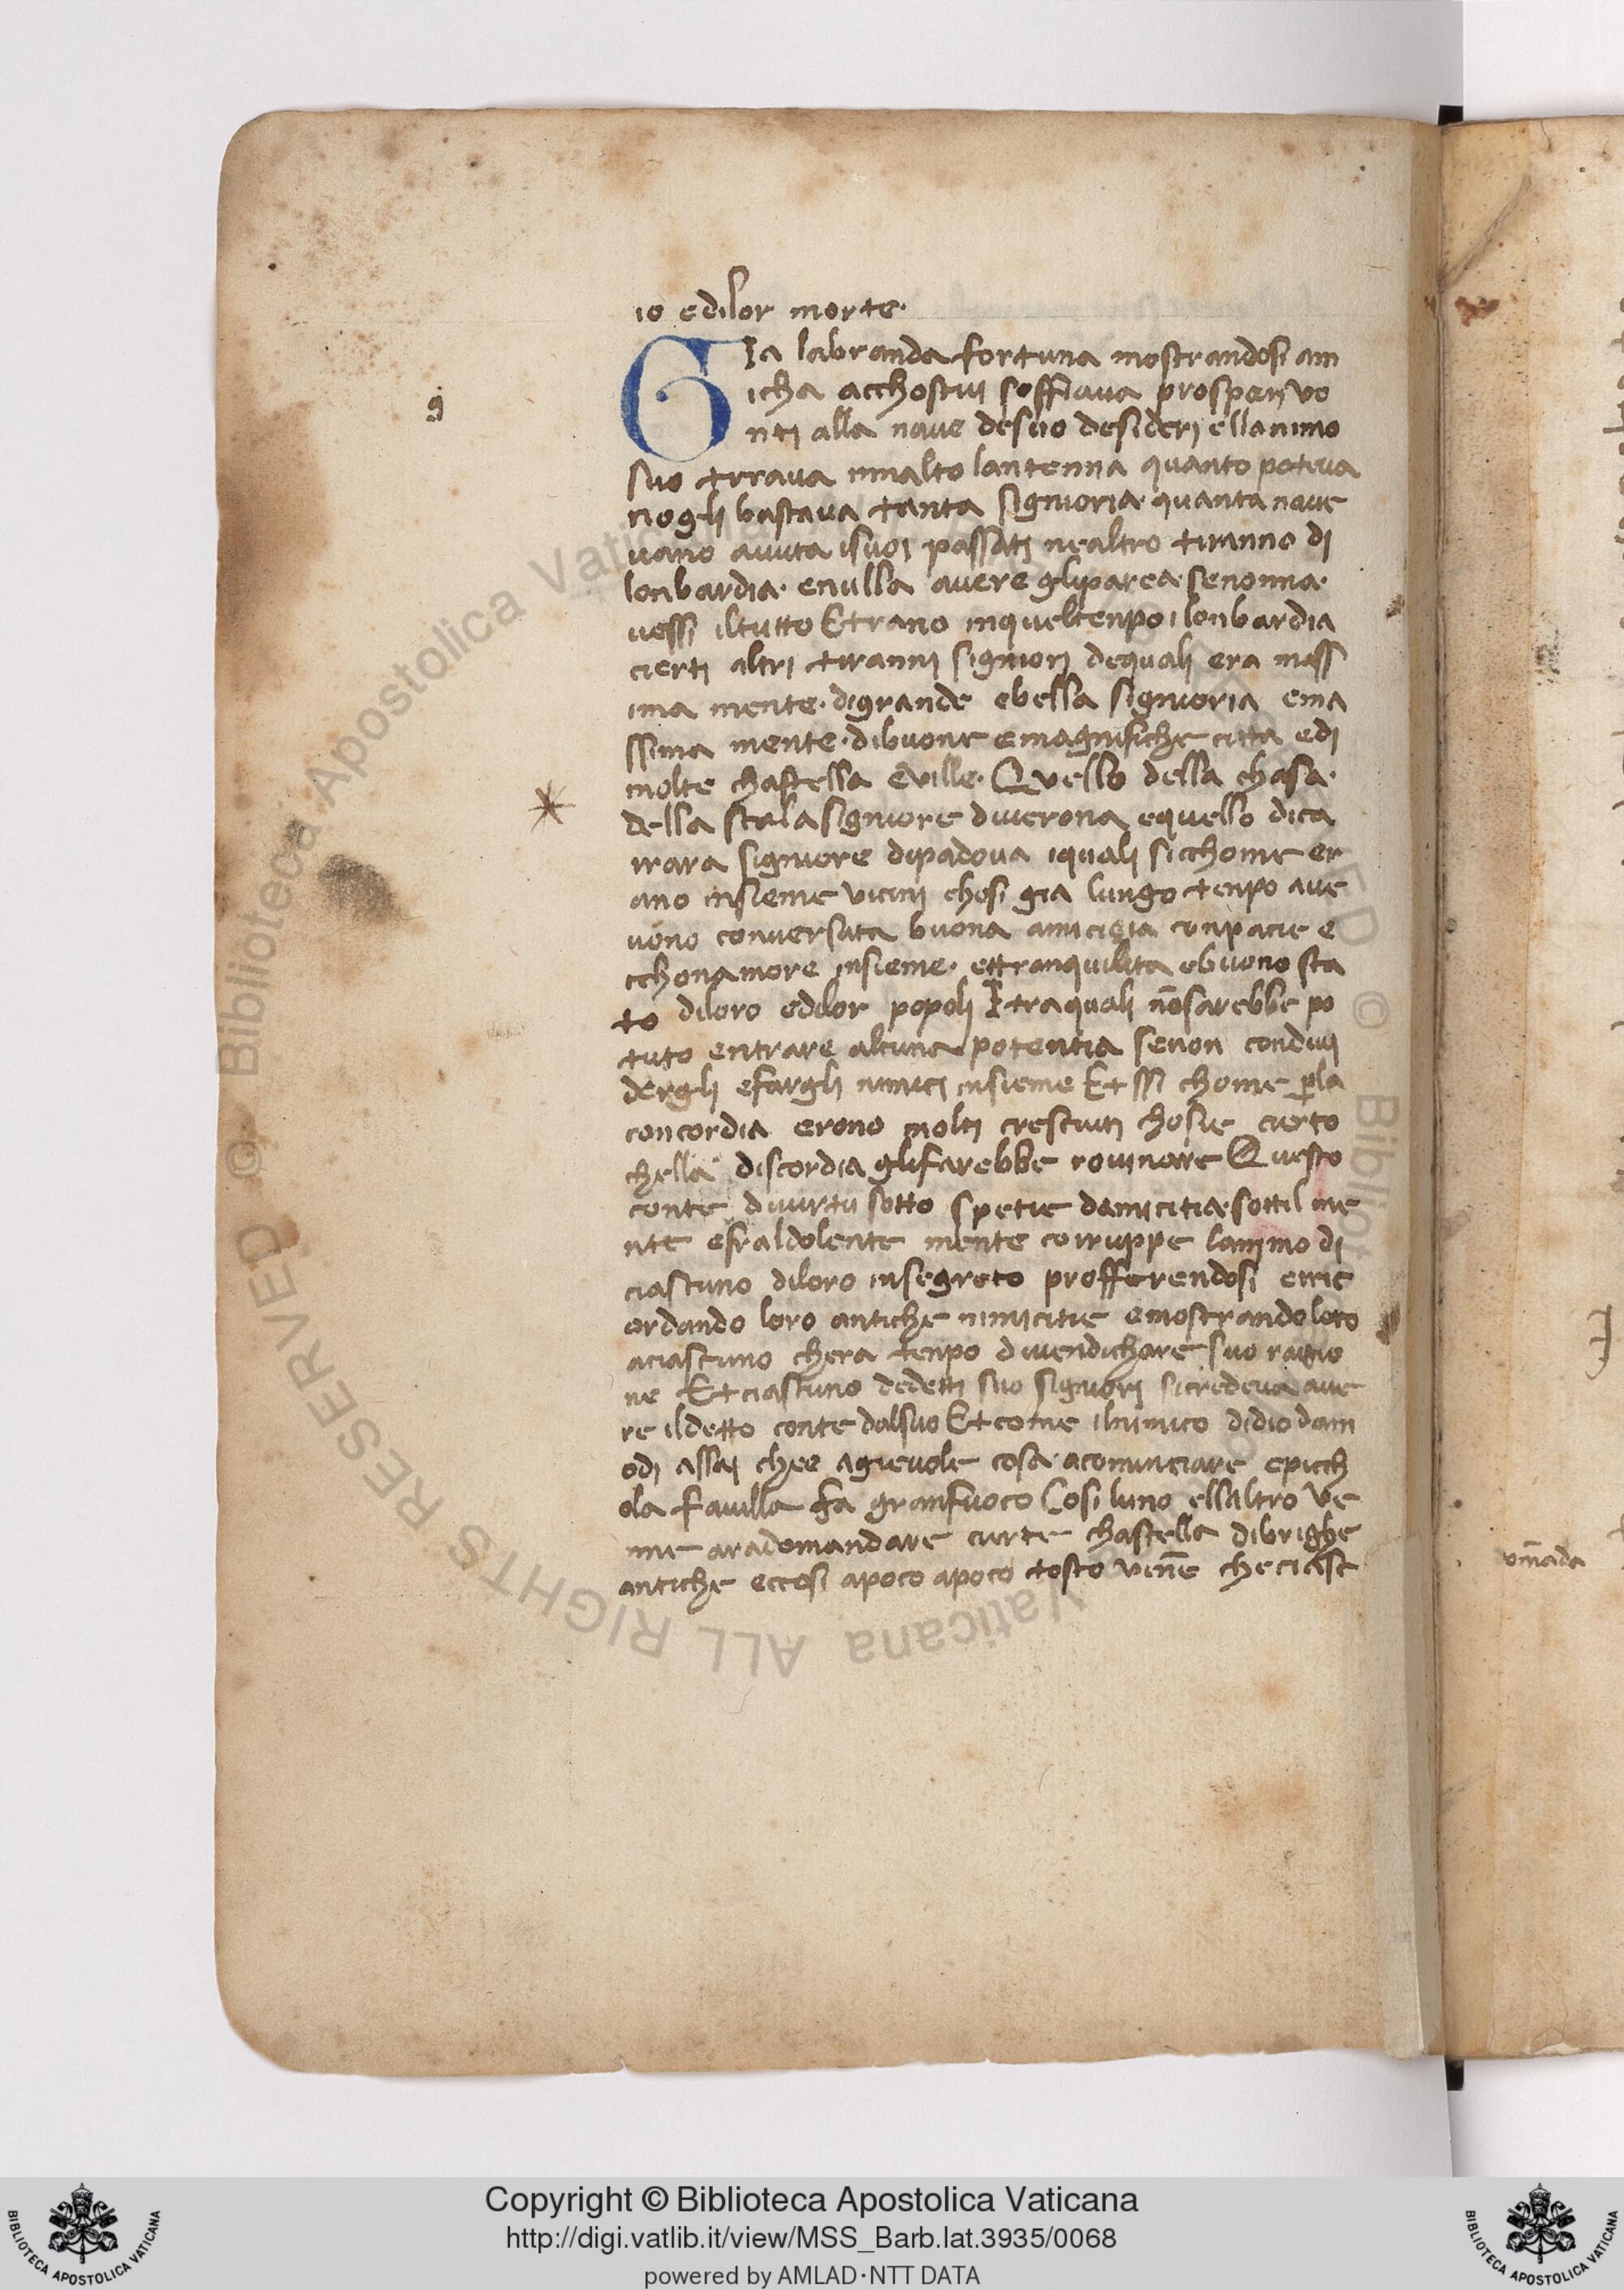 io edilor morte·
GIa labranda fortuna mostrandosi am
icha acchostui soffiaua prosperj ve
ntj alla naue desuo desiderj ellanimo
suo tiraua innalto lantenna quanto poteua
noglj bastaua tanta signioria· quanta naue
uano auuta isuoi passatj nealtro tiranno dj
lonbardia· enulla auere gliparea· senonna·
uessi iltutto Etrano inqueltenpo ilonbardia
cierti altri tiranni signiorj dequalj era mass
ima mente· digrande ebella signioria ema
ssima mente· dibuone emagnifiche citta edj
molte chastella euille· Quello della chasa·
della scala signiore diuerona equello dica
rrara signiore dipadoua iqualj sicchome er
ano insieme uicinj chosi gia lungo tenpo aue
uono conuersata buona amicizia conpacie e
cchonamore insieme· ettranquilita ebuono sta
to diloro edilor popolj Itraqualj nōsarebbe po
tuto entrare alcuna potentia senon condiui
derglj efarglj nimicj insieme Et ssi chome p̲la
concordia erono molti cresciutj chosie cierto
chella discordia glifarebbe rouinare Questo
conte diuirtu sotto spetie damicitia· sottil me
nte efraldolente mente corruppe lanimo dj
ciascuno diloro insegreto profferendosi erric
ordando loro antiche nimicitie emostrandoloro
aciascuno chera tenpo diuendichare suo ragio
ne Etciascuno dedetti suo signiorj sicredeua aue
re ildetto conte dalsuo Etcome ilnimico didio dam
odj assaj chee agieuole cosa acominciare epicch
ola fauilla fa granfuoco Cosi luno ellaltro ve
nne aradomandare cierte chastella dibrighe
antiche eccosi apoco apoco tosto uēne checiasc
g
vīnada
Copyright © Biblioteca Apostolica Vaticana
http://digi.vatlib.it/view/MSS_Barb.lat.3935/0068
powered by AMLAD·NTT DATA
BIBLIOTECA APOSTOLICA VATICANA
BIBLIOTECA APOSTOLICA VATICANA
© Biblioteca Apostolica Vaticana ALL RIGHTS RESERVED